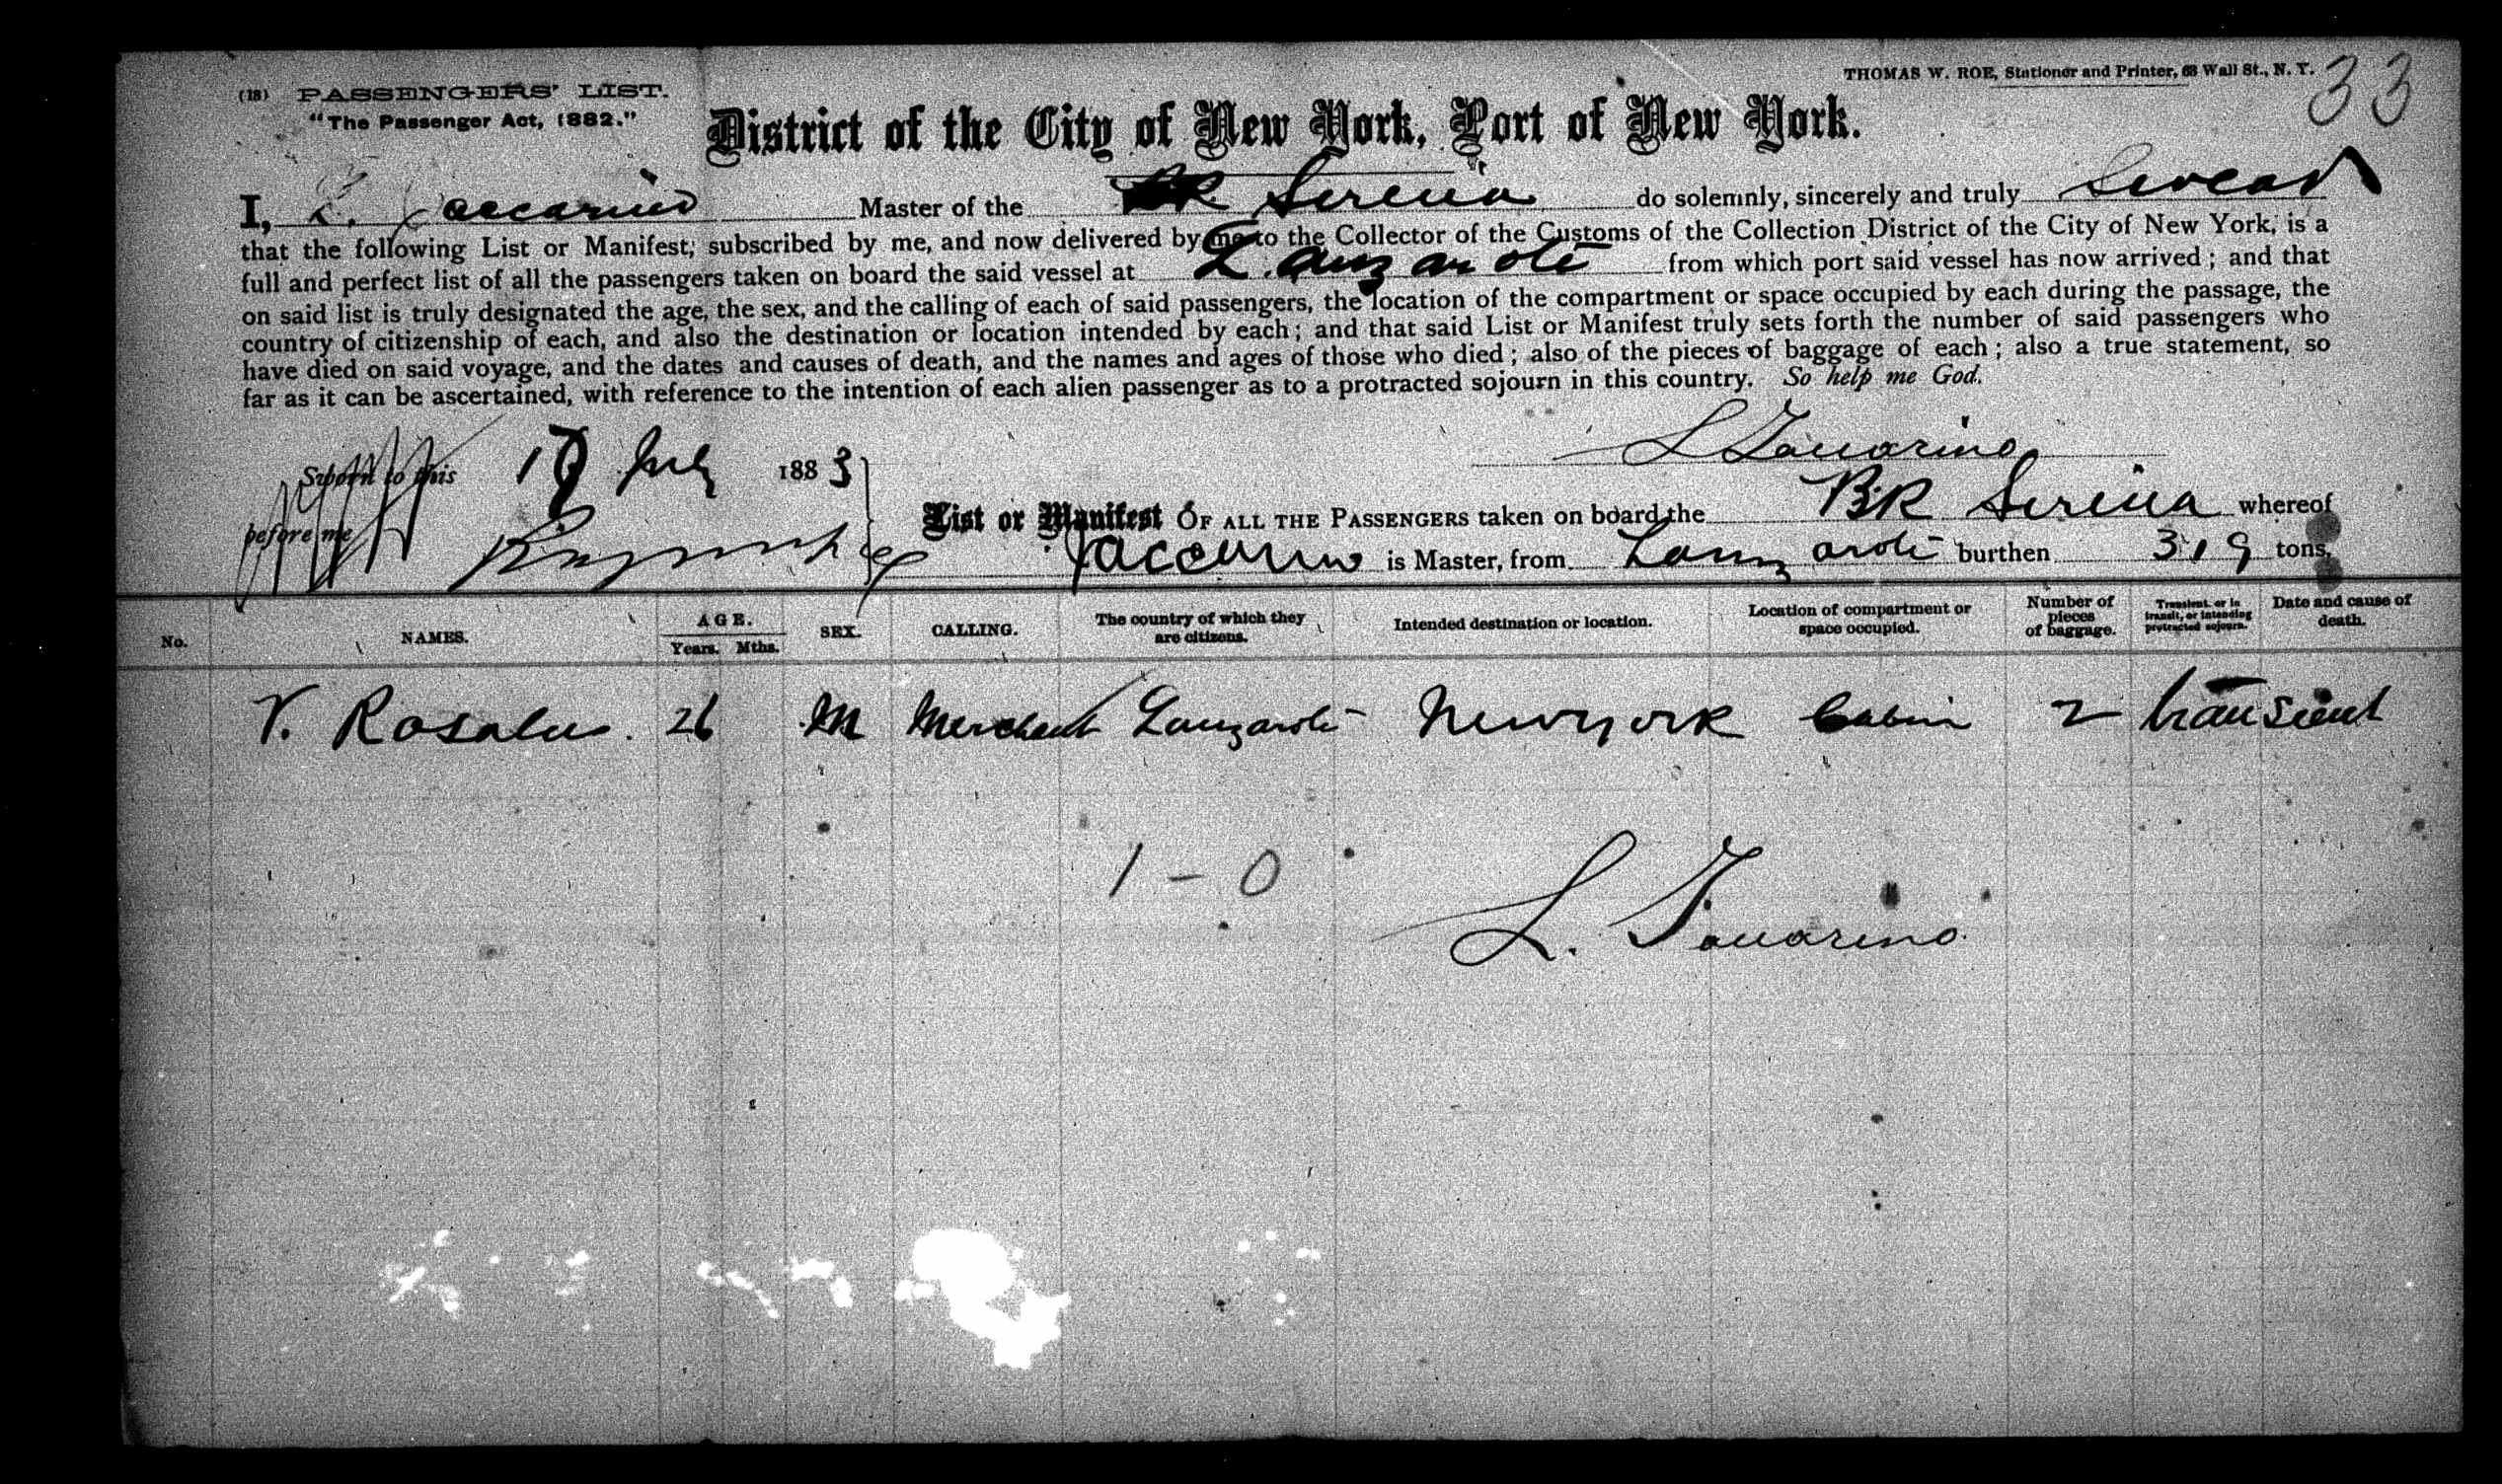 (18) PASSENGERS' LIST.
"The Passenger Act, 1882."
THOMAS W. ROE, Stationer and Printer, 63 Wall St., N. Y.
33
District of the City of New York, Port of New York.
I, L. Master of the BR Serena do solemnly, sincerely and truly Swear
that the following List or Manifest, subscribed by me, and now delivered by me to the Collector of the Customs of the Collection District of the City of New York, is a
full and perfect list of all the passengers taken on board the said vessel at Lanzarote from which port said vessel has now arrived; and that
on said list is truly designated the age, the sex, and the calling of each of said passengers, the location of the compartment or space occupied by each during the passage, the
country of citizenship of each, and also the destination or location intended by each; and that said List or Manifest truly sets forth the number of said passengers who
have died on said voyage, and the dates and causes of death, and the names and ages of those who died; also of the pieces of baggage of each; also a true statement, so
far as it can be ascertained, with reference to the intention of each alien passenger as to a protracted sojourn in this country. So help me God.
L
Sworn to this July 1883
before me
List or Manifest OF ALL THE PASSENGERS taken on board the BR Serena whereof
is Master, from Lanzarote burthen 319 tons.
No. NAMES. AGE. Years. Mths. SEX. CALLING. The country of which they are citizens. Intended destination or location. Location of compartment or space occupied. Number of pieces of baggage. Transient, or in transit, or intending protracted sojourn. Date and cause of death.
V. 26 M Merchant Lanzarote New york Cabin 2 transient
1 - 0
L.